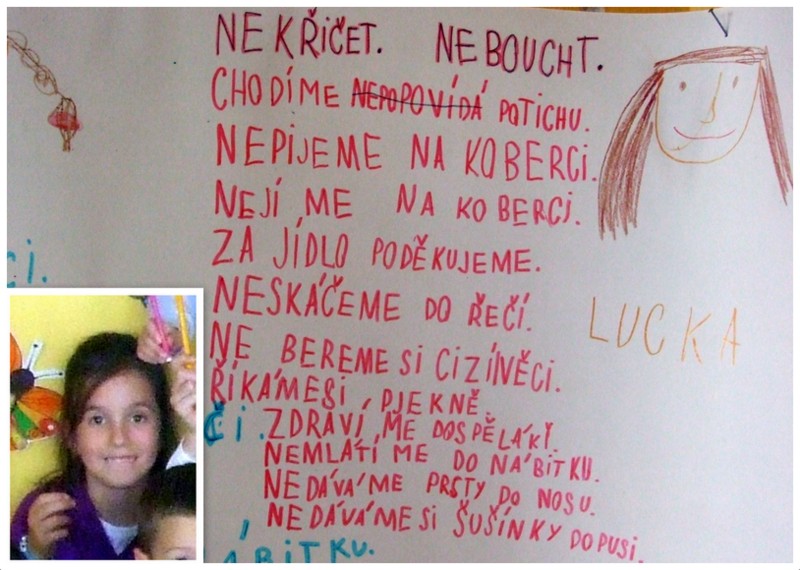 V
NEKŘIČET. NEBOUCHT.
CHODÍME NEPOPOVÍDÁ POTICHU.
NEPIJEME NA KOBERCI.
NEJÍ ME NA KOBERCI.
ZA JÍDLO PODĚKUJEME.
CI.
NESKÁČEME DO ŘEČÍ.
LUCKA
NE BEREME SI CIZÍNĚCI.
ŘÍKÁMESI PJEKNĚ
ČI. ZDRAVÍ ME DOSPĚLÁKÝ.
NEMLÁTÍ ME DO NÁBITKU.
NEDÁVÁME PRSTY DO NOSU.
NEDÁVÁMESI ŠUŠÍNKY DOPUSI.
ÁBITKU.